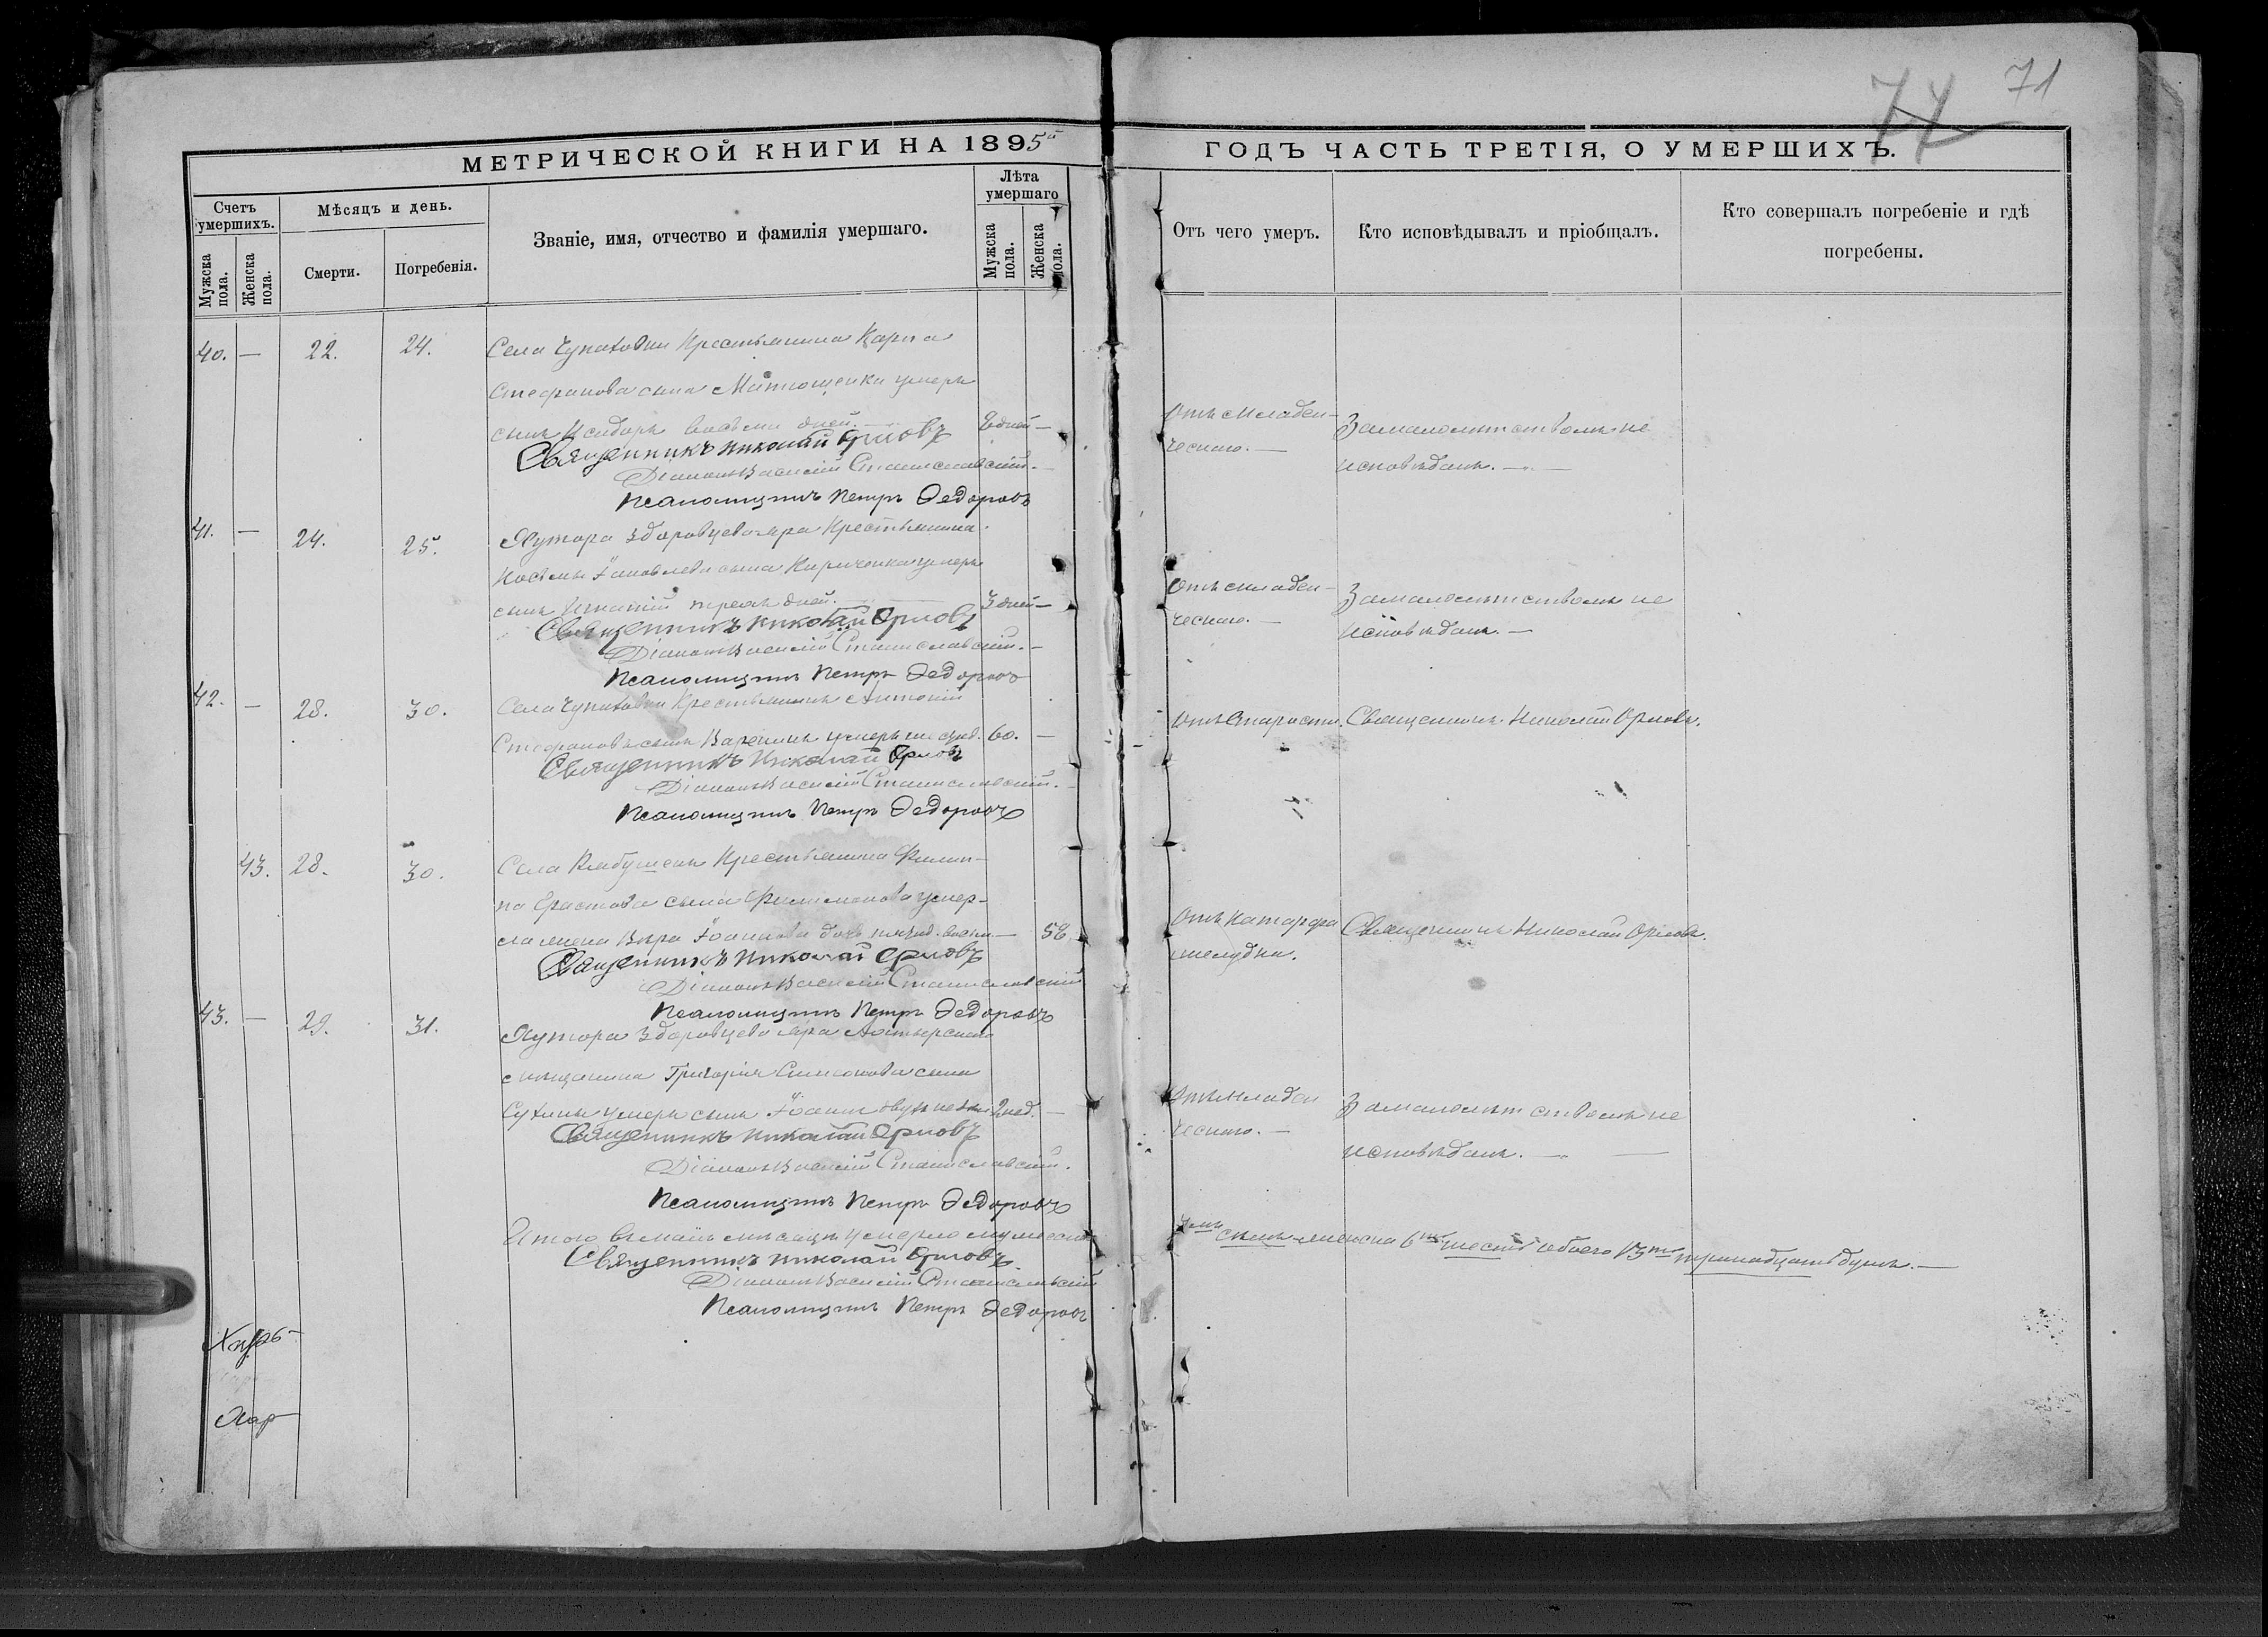 74 71
МЕТРИЧЕСКОЙ КНИГИ НА 1895й
ГОДЪ ЧАСТЬ ТРЕТІЯ, О УМЕРШИХЪ.
Счетъ умершихъ.
Мужска пола.
Женска пола.
Мѣсяцъ и день.
Смерти.
Погребенія.
Званіе, имя, отчество и фамилія умершаго.
Лѣта умершаго
Мужска пола.
Женска пола.
Отъ чего умеръ.
Кто исповѣдывалъ и пріобщалъ.
Кто совершалъ погребеніе и гдѣ
погребены.
40. — 22. 24. Села Чупаховки Крестьянина Карпа
Стефанова сына Матющенки умеръ
сынъ Исидоръ восьми дней. — 8 дней —
Отъ младен-
ческаго. —
За малолѣтствомъ не
исповѣданъ. —
Священникъ Николай Орловъ
Діаконъ Василій Станиславскій.
Псаломщикъ Петръ Федоровъ
41. — 24. 25. Хутора Здоровцева-яра Крестьянина
Косьмы Іаковлева сына Кириченка умеръ
сынъ Игнатій трехъ дней. 3 дней —
Отъ младен-
ческаго. —
За малолѣтствомъ не
исповѣданъ. —
Священникъ Николай Орловъ
Діаконъ Василій Станиславскій.
Псаломщикъ Петръ Федоровъ
42. — 28. 30. Села Чупаховки Крестьянинъ Антоній
Стефановъ сынъ умеръ 60. —
Отъ старости. Священникъ Николай Орловъ.
Священникъ Николай Орловъ
Діаконъ Василій Станиславскій.
Псаломщикъ Петръ Федоровъ
43. 28. 30. Села Крестьянина Филип-
па Ерастова сына Филимонова умер-
ла жена Вѣра Іоаннова дочь — 58
Отъ катарра
желудка.
Священникъ Николай Орловъ.
Священникъ Николай Орловъ
Діаконъ Василій Станиславскій
Псаломщикъ Петръ Федоровъ
43. — 29. 31. Хутора Здоровцева яра Ахтырскаго
мѣщанина Григорія Симеонова сына
Сухины умеръ сынъ Іоаннъ двухъ 2 нед. —
Отъ младен
ческаго. —
За малолѣтствомъ не
исповѣданъ. —
Священникъ Николай Орловъ
Діаконъ Василій Станиславскій.
Псаломщикъ Петръ Федоровъ
Итого въ маѣ мѣсяцѣ умерло мужеска
7мь семь женска 6ть шесть обоего 13ть тринадцать душъ. —
Священникъ Николай Орловъ
Діаконъ Василій Станиславскій
Псаломщикъ Петръ Федоровъ
Харь-
Хар